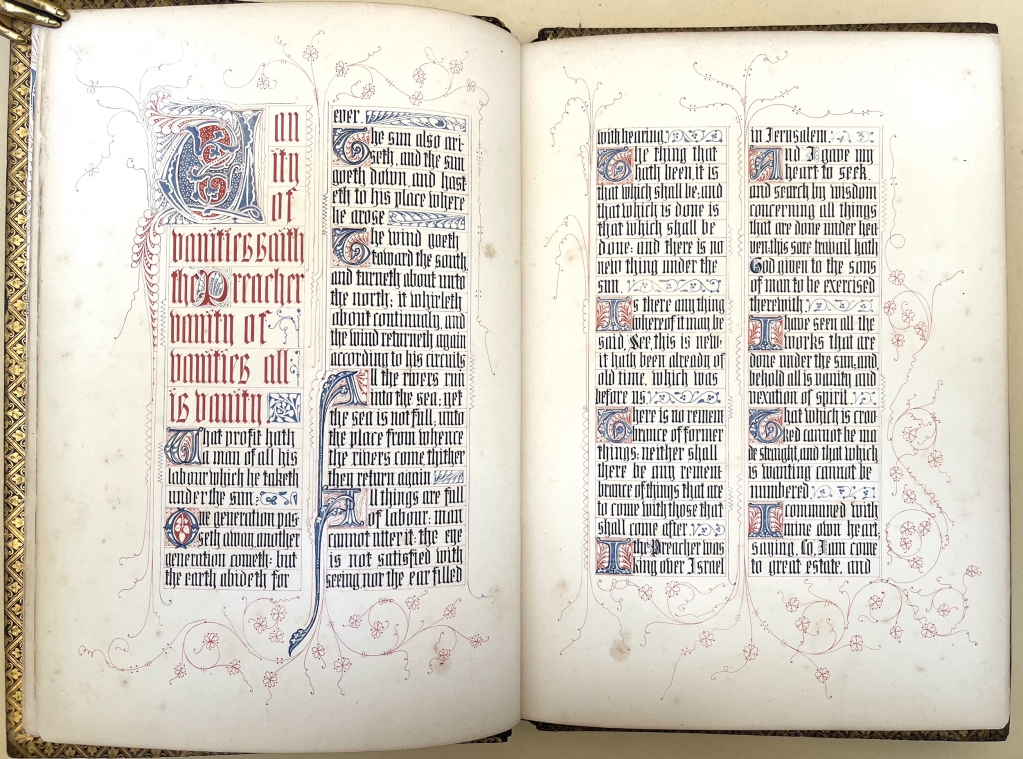 Van
ity
of
vanities saith
the Preacher
vanity of
vanities all
is vanity
What profit hath
a man of all his
labour which he taketh
under the sun:
One generation pas
seth away, another
generation cometh: but
the earth abideth for
ever.
The sun also ari-
seth, and the sun
goeth down, and hast
eth to his place where
he arose
The wind goeth
toward the south,
and turneth about unto
the north; it whirleth
about continualy, and
the wind returneth again
according to his circuits
All the rivers run
into the sea; yet
the sea is not full, unto
the place from whence
the rivers come thither
they return again
All things are full
of labour; man
cannot utter it: the eye
is not satisfied with
seeing nor the ear filled
with hearing.
The thing that
hath been, it is
that which shall be: and
that which is done is
that which shall be
done: and there is no
new thing under the
sun.
Is there any thing
whereof it may be
said, See, this is new:
it hath been already of
old time, which was
before us.
There is no remem
brance of former
things: neither shall
there be any remem
brance of things that are
to come with those that
shall come after.
I the Preacher was
king over Israel
in Jerusalem.
And I gave my
heart to seek
and search by wisdom
concerning all things
that are done under hea
ven: this sore travail hath
God given to the sons
of man to be exercised
therewith.
I have seen all the
works that are
done under the sun, and,
behold all is vanity and
vexation of spirit.
That which is croo
ked cannot be ma
de straight, and that which
is wanting cannot be
numbered.
I communed with
mine own heart,
saying, Lo, I am come
to great estate, and